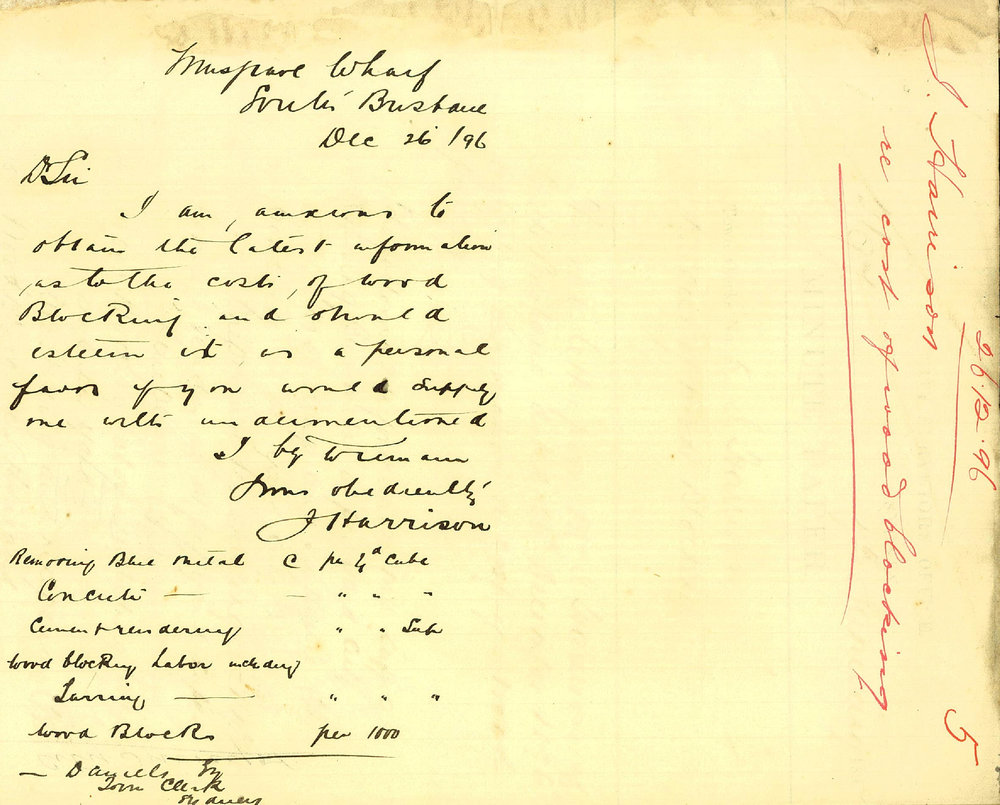 Musgrave Wharf
South Brisbane
Dec 26 /96
Dr Sir
I am anxious to
obtain the latest information
as to the costs of wood
Blocking and should
esteem it as a personal
favor if you would supply
me with undermentioned
I beg to remain
Yours obediently
J Harrison
Removing Blue Metal C per yd Cube
Concrete — — " " "
Cement rendering " " Sup
Wood blocking Labor including
Tarring — " " "
Wood Blocks per 1000
— Daniels Esq
Town Clerk
Sydney
J. Harrison
re cost of wood blocking
26.12.96
5